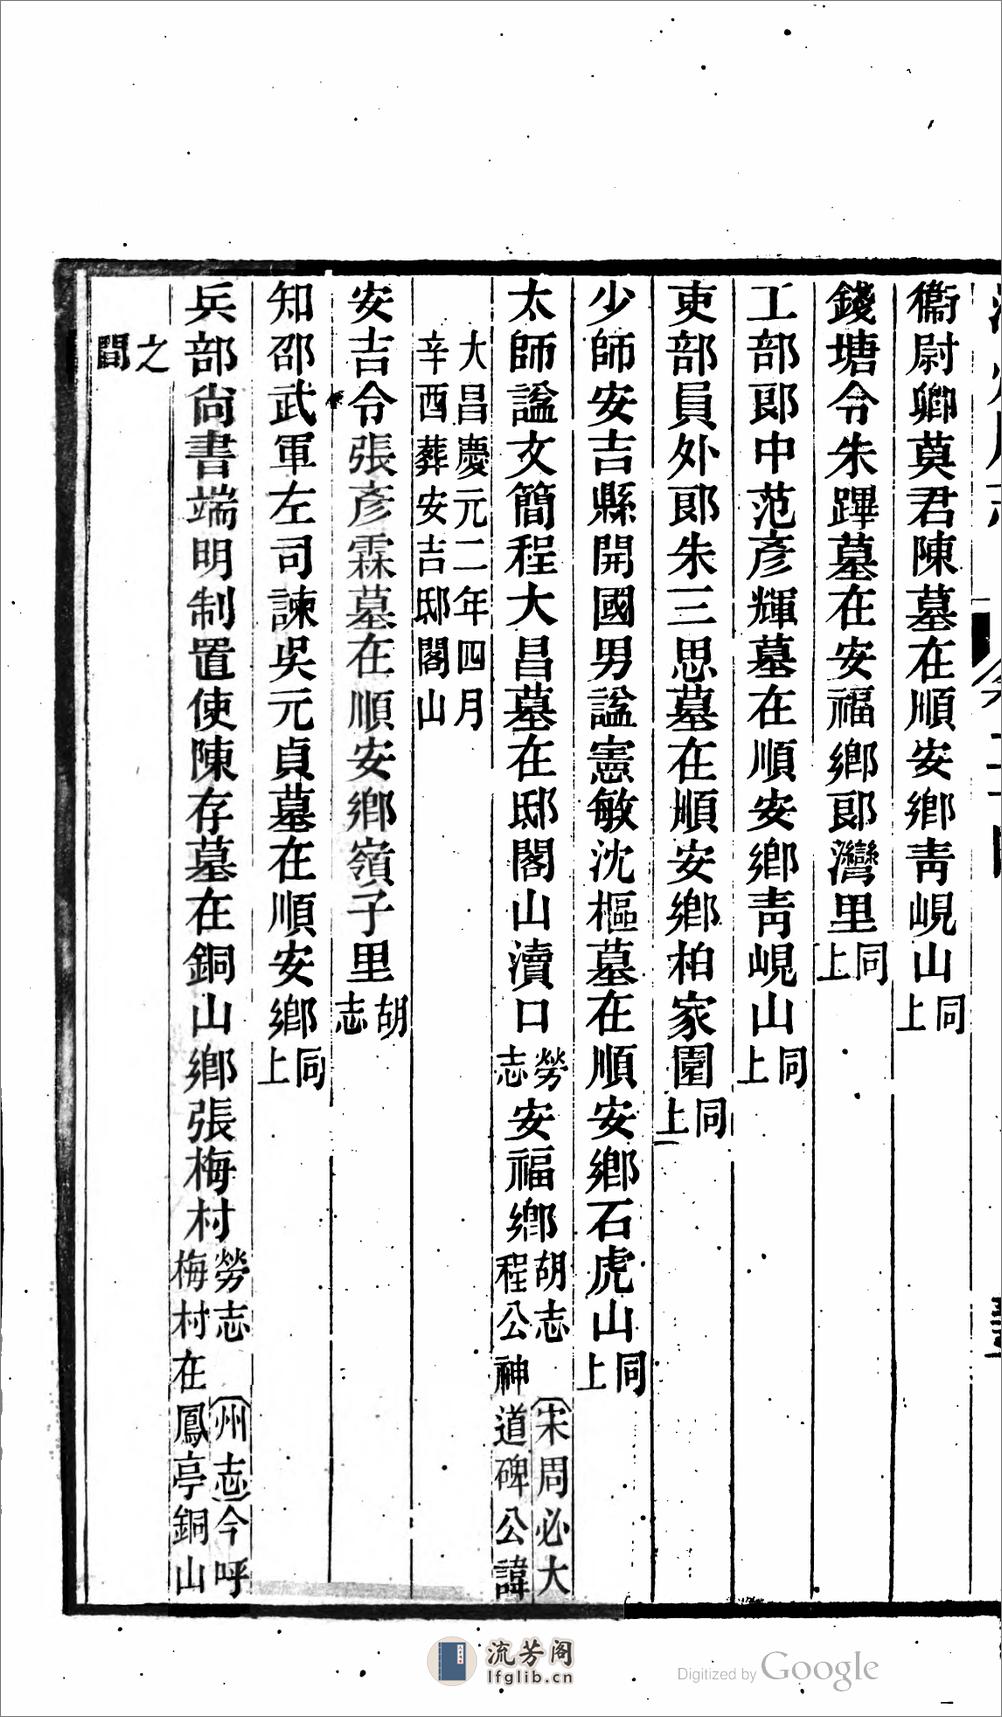 衞尉卿莫君陳墓在順安鄉靑峴山同上
錢塘令朱蹕墓在安福鄉郞灣里同上
工部郞中范彥輝墓在順安鄉靑峴山同上
吏部員外郞朱三思墓在順安鄉柏家園同上
少師安吉縣開國男諡憲敏沈樞墓在順安鄉石虎山同上
太師諡文簡程大昌墓在邸閣山瀆口勞志安福鄉胡志 宋周必大程公神道碑公諱
大昌慶元二年四月辛酉葬安吉邸閣山
安吉令張彥霖墓在順安鄉嶺子里胡志
知邵武軍左司諫吳元貞墓在順安鄉同上
兵部尙書端明制置使陳存墓在銅山鄉張梅村勞志 州志今呼梅村在鳳亭銅山
之間
流芳阁
lfglib.cn
Digitized by Google